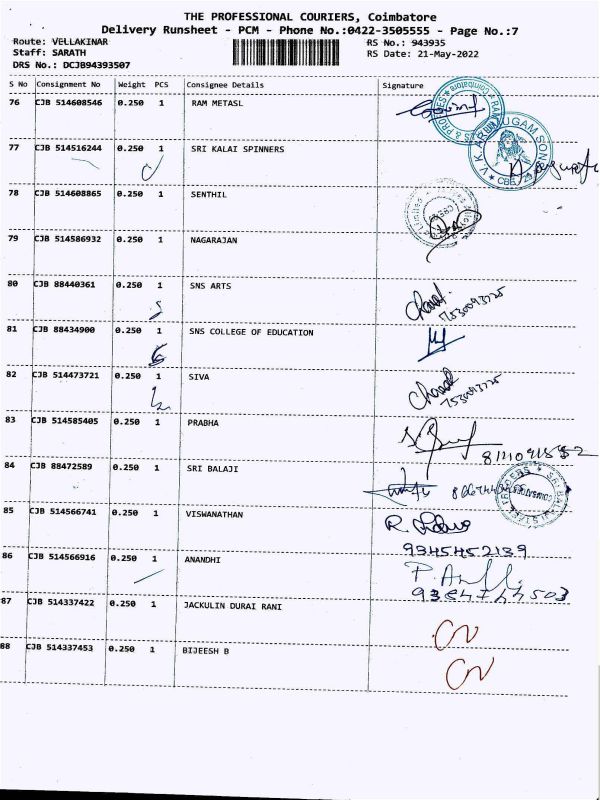 THE PROFESSIONAL COURIERS, Coimbatore
Delivery Runsheet - PCM - Phone No.:0422-3505555 - Page No.:7
Route: VELLAKINAR
RS No.: 943935
Staff: SARATH
RS Date: 21-May-2022
DRS No.: DCJB94393507
S No Consignment No Weight PCS Consignee Details Signature
76 CJB 514608546 0.250 1 RAM METASL
77 CJB 514516244 0.250 1 SRI KALAI SPINNERS
V.K. ARUMUGAM SONS
CBE
78 CJB 514608865 0.250 1 SENTHIL
79 CJB 514586932 0.250 1 NAGARAJAN
80 CJB 88440361 0.250 1 SNS ARTS
7530093125
81 CJB 88434900 0.250 1 SNS COLLEGE OF EDUCATION
82 CJB 514473721 0.250 1 SIVA
83 CJB 514585405 0.250 1 PRABHA
84 CJB 88472589 0.250 1 SRI BALAJI
85 CJB 514566741 0.250 1 VISWANATHAN
9345452139
86 CJB 514566916 0.250 1 ANANDHI
87 CJB 514337422 0.250 1 JACKULIN DURAI RANI
88 CJB 514337453 0.250 1 BIJEESH B